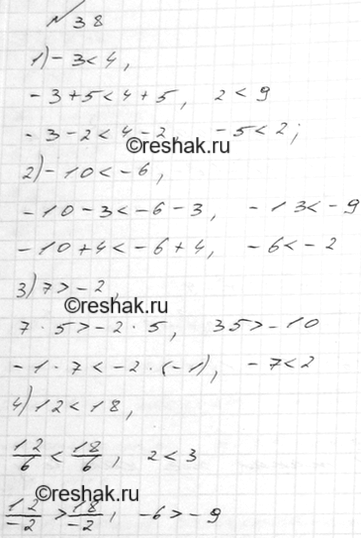 №38
1) -3<4,
-3+5<4+5, 2<9
-3-2<4-2, -5<2;
©reshak.ru
2) -10<-6,
-10-3<-6-3, -13<-9
-10+4<-6+4, -6<-2
3) 7>-2,
©reshak.ru
7·5>-2·5, 35>-10
-1·7<-2·(-1), -7<2
4) 12<18,
©reshak.ru
12/6<18/6, 2<3
12/-2>18/-2, -6>-9
©reshak.ru